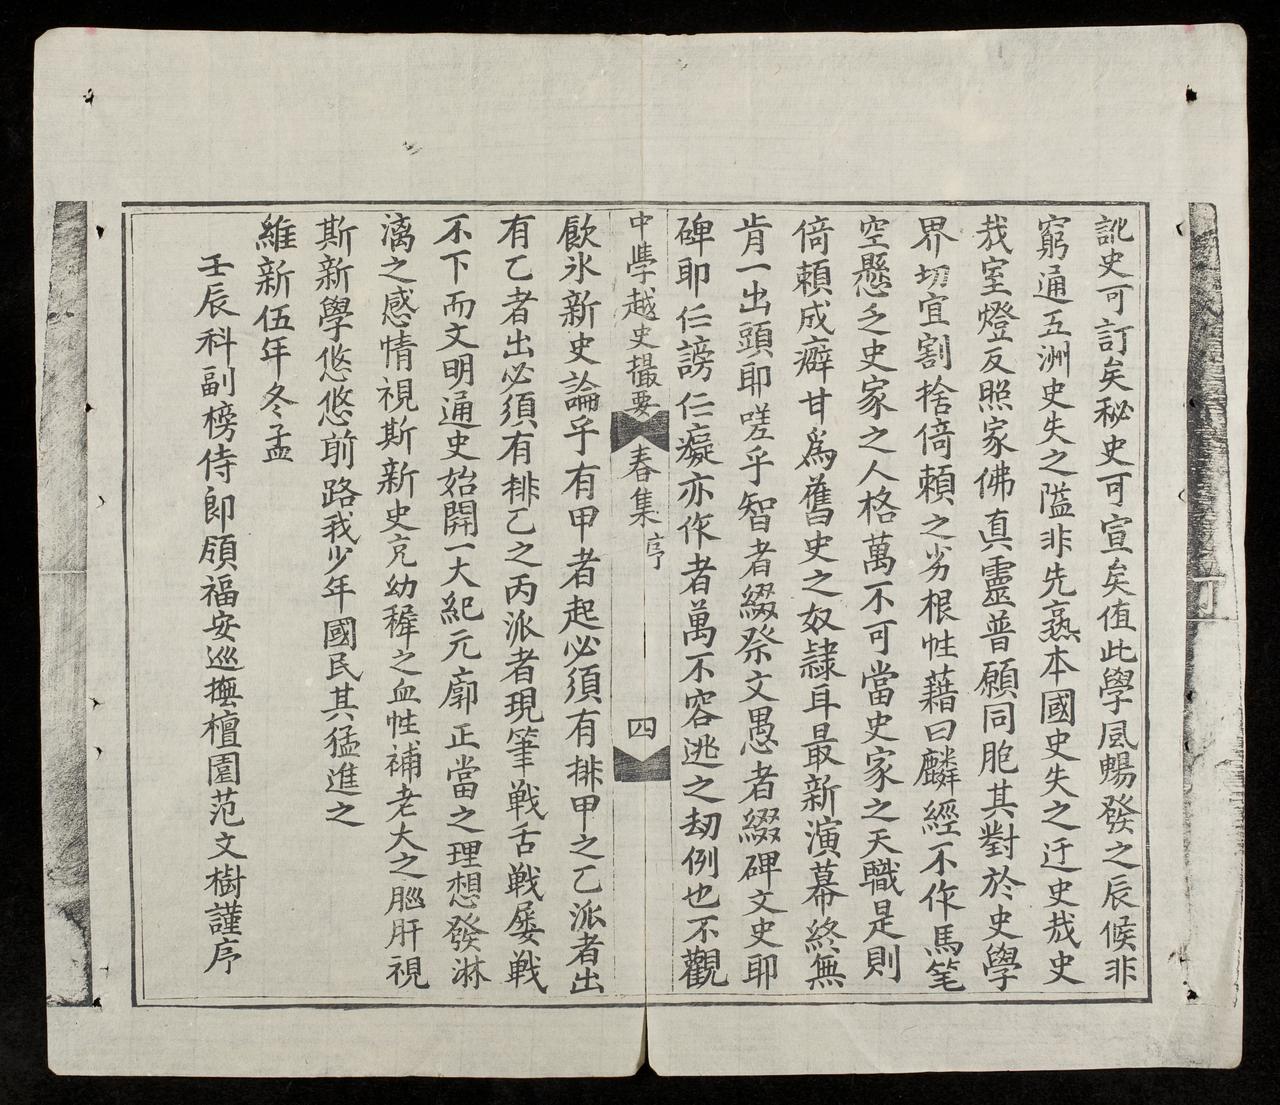 訛史可訂矣秘史可宣矣值此學風暢發之辰候非
窮通五洲史失之隘非先熟本國史失之迂史㢤史
㢤室燈反照家佛真靈普願同胞其對於史學
界切宜割捨倚賴之劣根性藉曰麟經不作馬笔
空懸乏史家之人格萬不可當史家之天職是則
倚賴成癖甘爲舊史之奴隷耳最新演幕終無
肯一出頭耶嗟乎智者綴祭文愚者綴碑文史耶
碑耶仁謗仁癡亦作者萬不容逃之刼例也不觀
中學越史撮要 春集 序 四
飲氷新史論乎有甲者起必須有排甲之乙派者出
有乙者出必須有排乙之丙派者現筆戦舌戦屡戦
不下而文明通史始開一大紀元廓正當之理想發淋
漓之感情視斯新史充幼穉之血性補老大之腦肝視
斯新學悠悠前路我少年國民其猛進之
維新伍年冬孟
壬辰科副榜侍郎領福安巡撫檀園范文樹謹序